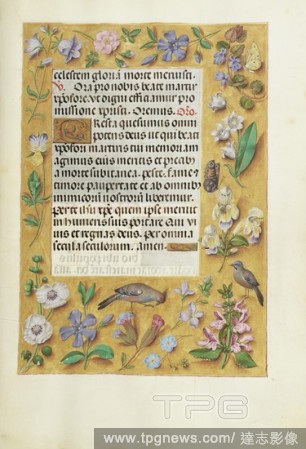 celestem gloriā morte meruisti.
V. Ora pro nobis beate martir
xpofore. vt digni efficiamur pro
missione xpristi. Oremus. Oro.
Presta quesumus omni
potens deus ut qui beati
xpofori martiris tui memoriam
agimus eius meritis et precib9
a morte subitanea. peste. fame.
timore paupertate et ab omnib9
inimicorum nostrorum liberemur.
Per et ihm xpm quem ipse meruit
in humeris suis portare Qui vi
uis et regnas deus. Per omnia
secula seculorum. Amen.
TPG
www.tpgnews.com/ 達志影像